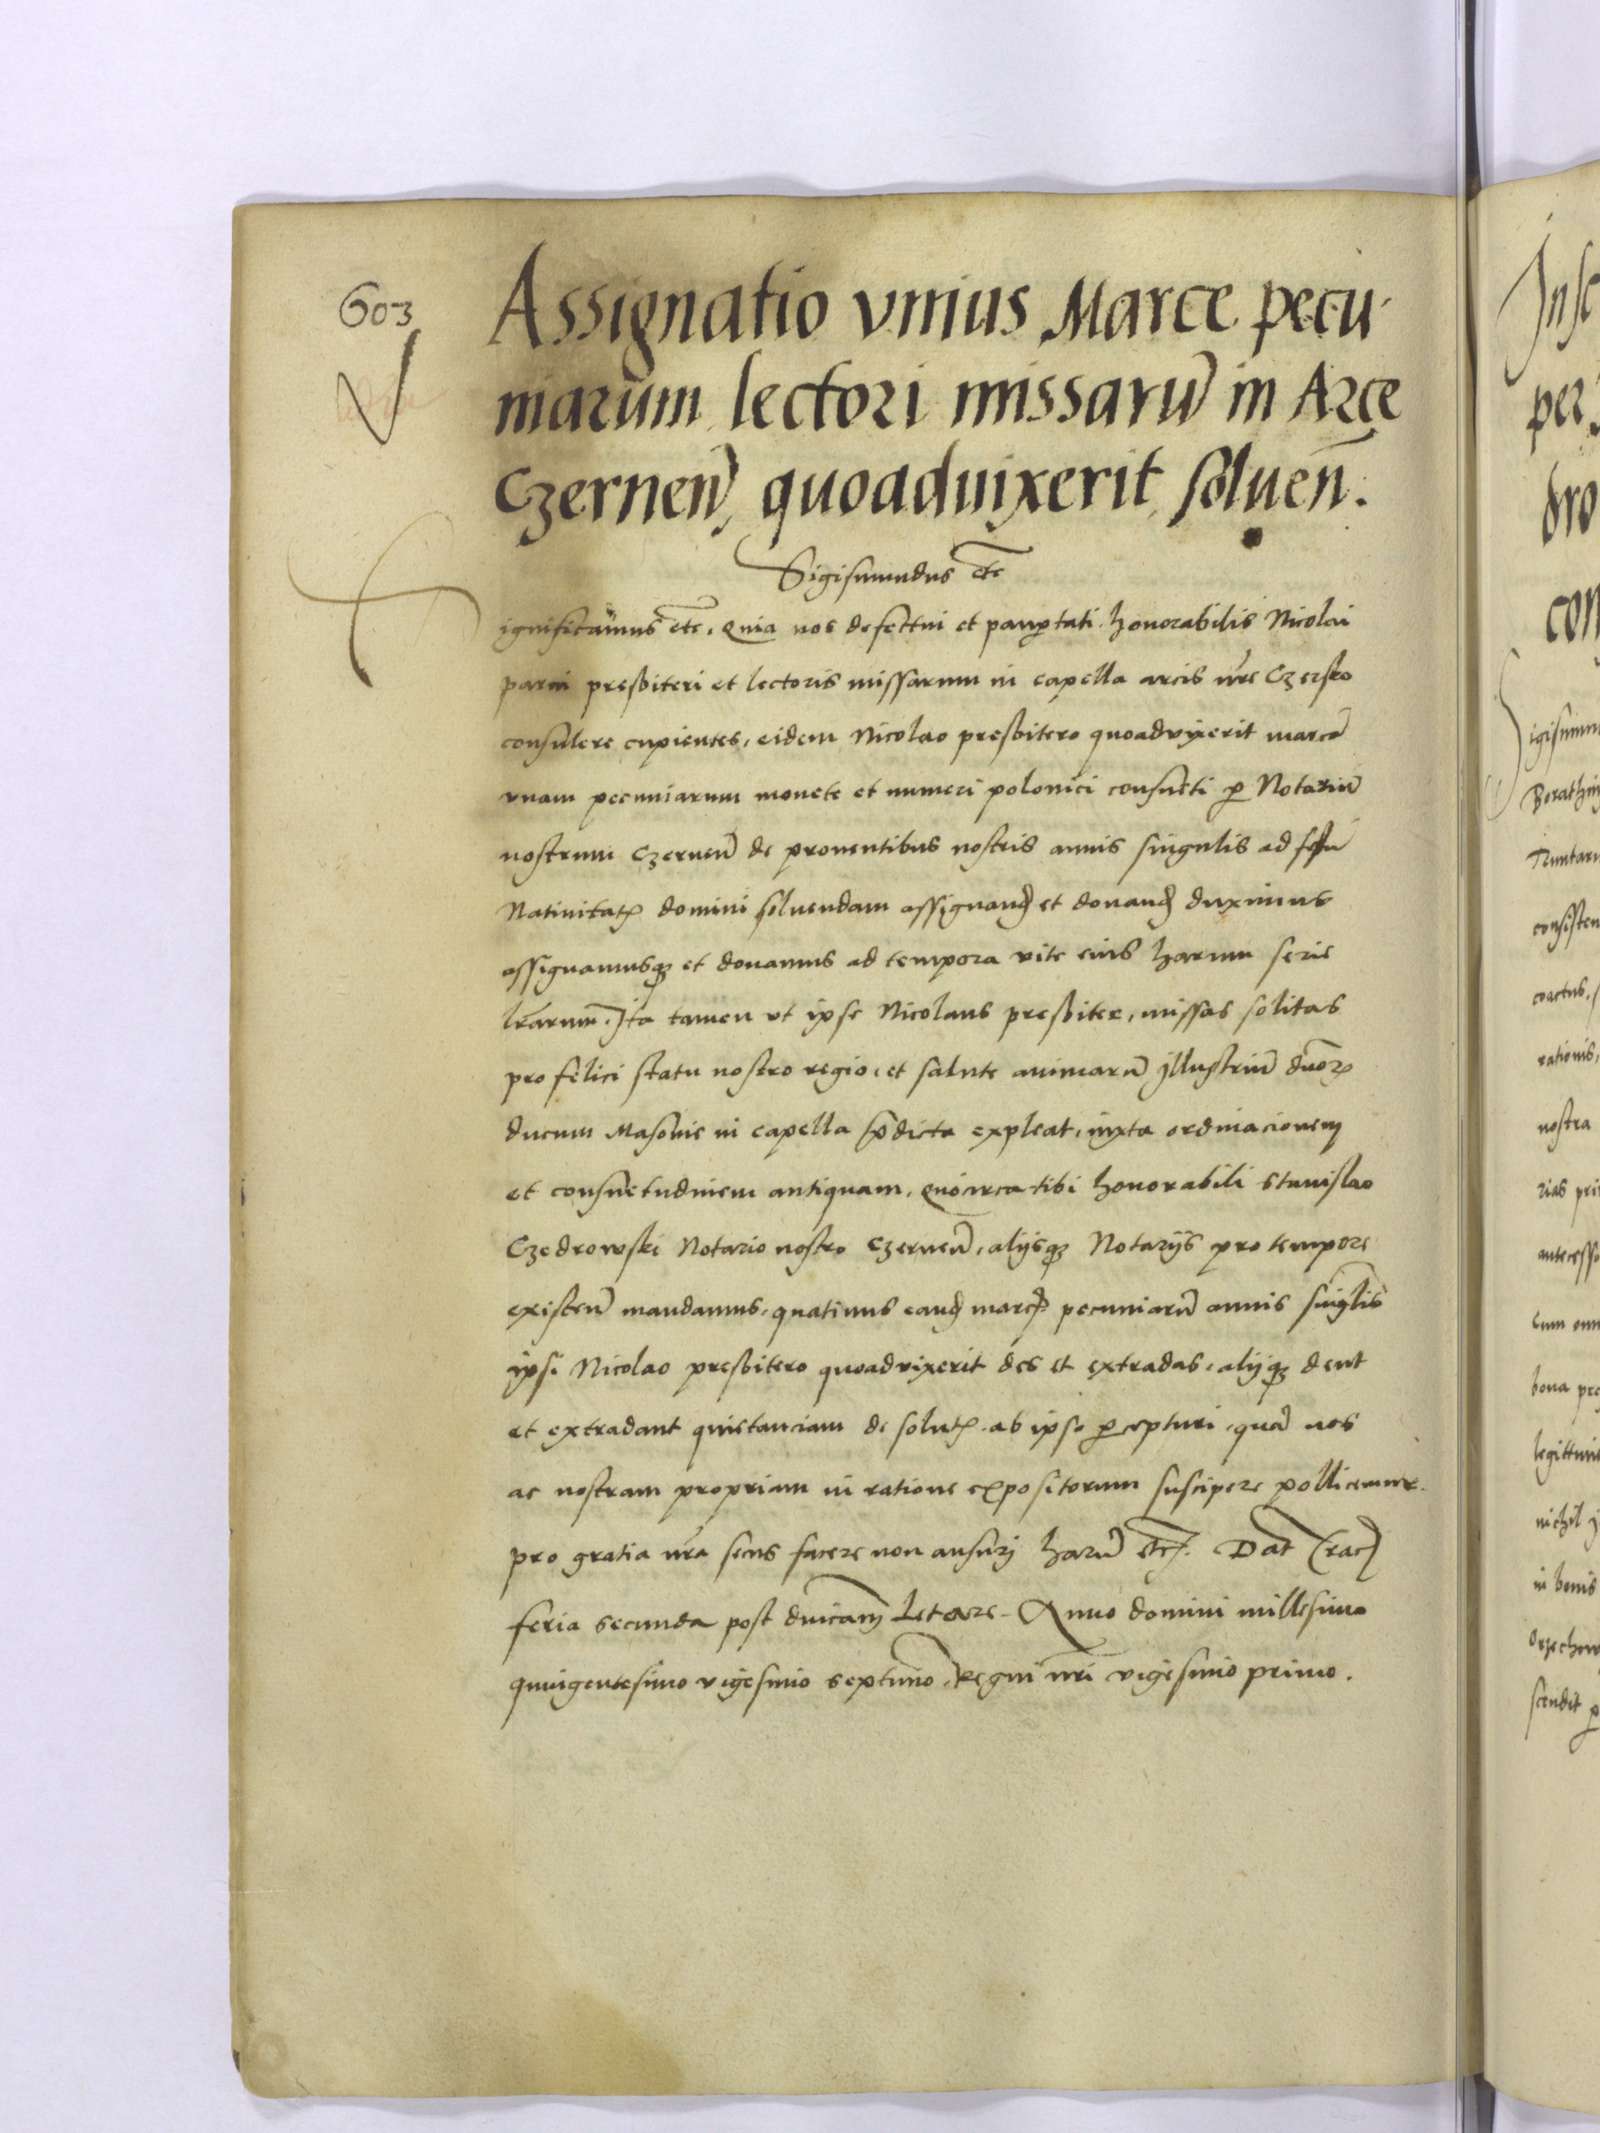 603
Assignatio vnius Marce pecu-
niarum lectori missarũ in Arce
Czerneñ, quoaduixerit, soluen̄.
Sigismundus etc̃
ignificamus etc̃. Quia nos defectui et paup̱tati honorabilis Nicolai
parui presbiteri et lectoris missarum in capella arcis nr̃e Czersko
consulere cupientes, eidem Nicolao presbitero quoadvixerit marcã
vnam pecuniarum monete et numeri polonici consueti p̱ Notariũ
nostrum Czerneñ de prouentibus nostris annis singulis ad festũ
Natiuitatꝭ domini soluendam assignanđ et donanđ duximus
assignamusqꝫ et donamus ad tempora vite eius harum serie
lr̃arum. Ita tamen vt ipse Nicolaus presbiter, missas solitas
pro felici statu nostro regio, et salute animarũ Illustriũ dnõꝝ
ducum Masouie in capella p̃dicta expleat, iuxta ordinacionem
et consuetudinem antiquam, Quocirca tibi honorabili Stanislao
Czedrowski Notario nostro Czerneñ, alijsqꝫ Notarijs pro tempore
existeñ mandamus, quatinus eanđ marcꝭ pecuniarũ annis singl̃is
ipsi Nicolao presbitero quoadvixerit des et extradas, alijqꝫ dent
et extradant quietanciam de solutꝭ ab ipso p̱cepturi, quã nos
ac nostram propriam in ratione expositorum suscipere pollicemur.
pro gratia nr̃a secus facere non ausuri harũ etc̃. Dat̃ Crac̃
feria secunda post dnĩcam Letare. Anno domini millesimo
quingentesimo vigesimo septimo, Regni nr̃i vigesimo primo.
Insc
per
dro
con
igismun
consisten
coactus.
rationis,
nostra
rias pri
antecesso
cum omn
bona pre
nichil
in bonis
Orzechow